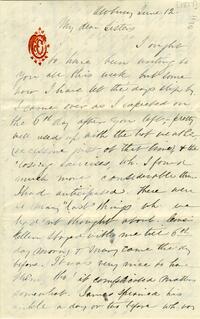 June 12
My dear Sisters
I ought
to have been writing to
you all this week but some
how I have let the days slip by
I came over as I expected on
the 6th day after you left, pretty
well used up with the hot weather
closing exercises, wh. I found
much more considerable than
I had anticipated. There were
so many "last" things wh we
had not thought about.
Ellen stayed with me till 6th
day morng & Mary came the day
before. It was very nice to have
them tho' it complicated matters
somewhat. James
ankle a day or two before wh